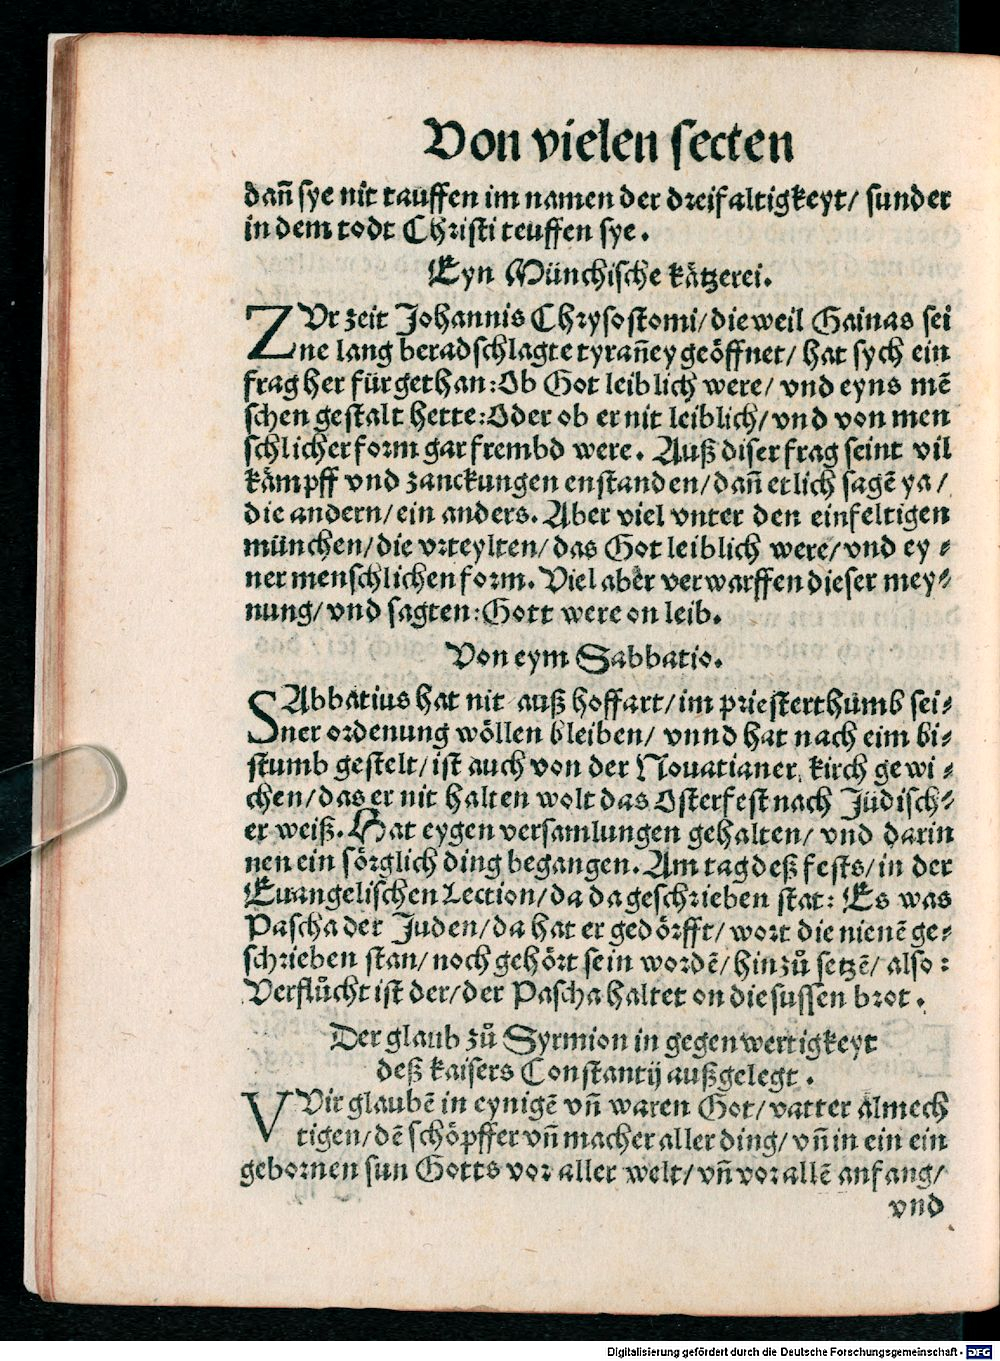 Von vielen secten
dañ sye nit tauffen im namen der dreifaltigkeyt/ sunder
in dem todt Christi teuffen sye.
Eyn Münchische kätzerei.
ZVr zeit Johannis Chrysostomi/ die weil Gainas sei
ne lang beradschlagte tyrañey geöffnet/ hat sych ein
frag her für gethan: Ob Got leiblich were/ vnd eyns mē
schen gestalt hette: Oder ob er nit leiblich/ vnd von men
schlicher form gar frembd were. Auß diser frag seint vil
kämpff vnd zanckungen enstanden/ dañ etlich sagē ya/
die andern/ ein anders. Aber viel vnter den einfeltigen
münchen/ die vrteylten/ das Got leiblich were/ vnd ey⸗
ner menschlichen form. Viel aber verwarffen dieser mey⸗
nung/ vnd sagten: Gott were on leib.
Von eym Sabbatio.
SAbbatius hat nit auß hoffart/ im priesterthumb sei⸗
ner ordenung wöllen bleiben/ vnnd hat nach eim bi⸗
stumb gestelt/ ist auch von der Nouatianer kirch gewi⸗
chen/ das er nit halten wolt das Osterfest nach Jüdisch⸗
er weiß. Hat eygen versamlungen gehalten/ vnd darin
nen ein sörglich ding begangen. Am tag deß fests/ in der
Euangelischen Lection/ da da geschrieben stat: Es was
Pascha der Juden/ da hat er gedörfft/ wort die nienē ge⸗
schrieben stan/ noch gehört sein wordē/ hinzů setzē/ also:
Verflůcht ist der/ der Pascha haltet on die sussen brot.
Der glaub zů Syrmion in gegenwertigkeyt
deß kaisers Constantij außgelegt.
VVir glaubē in eynigē vñ waren Got/ vatter almech
tigen/ dē schöpffer vñ macher aller ding/ vñ in ein ein
gebornen sun Gotts vor aller welt/ vñ vor allē anfang/
vnd
Digitalisierung gefördert durch die Deutsche Forschungsgemeinschaft - DFG